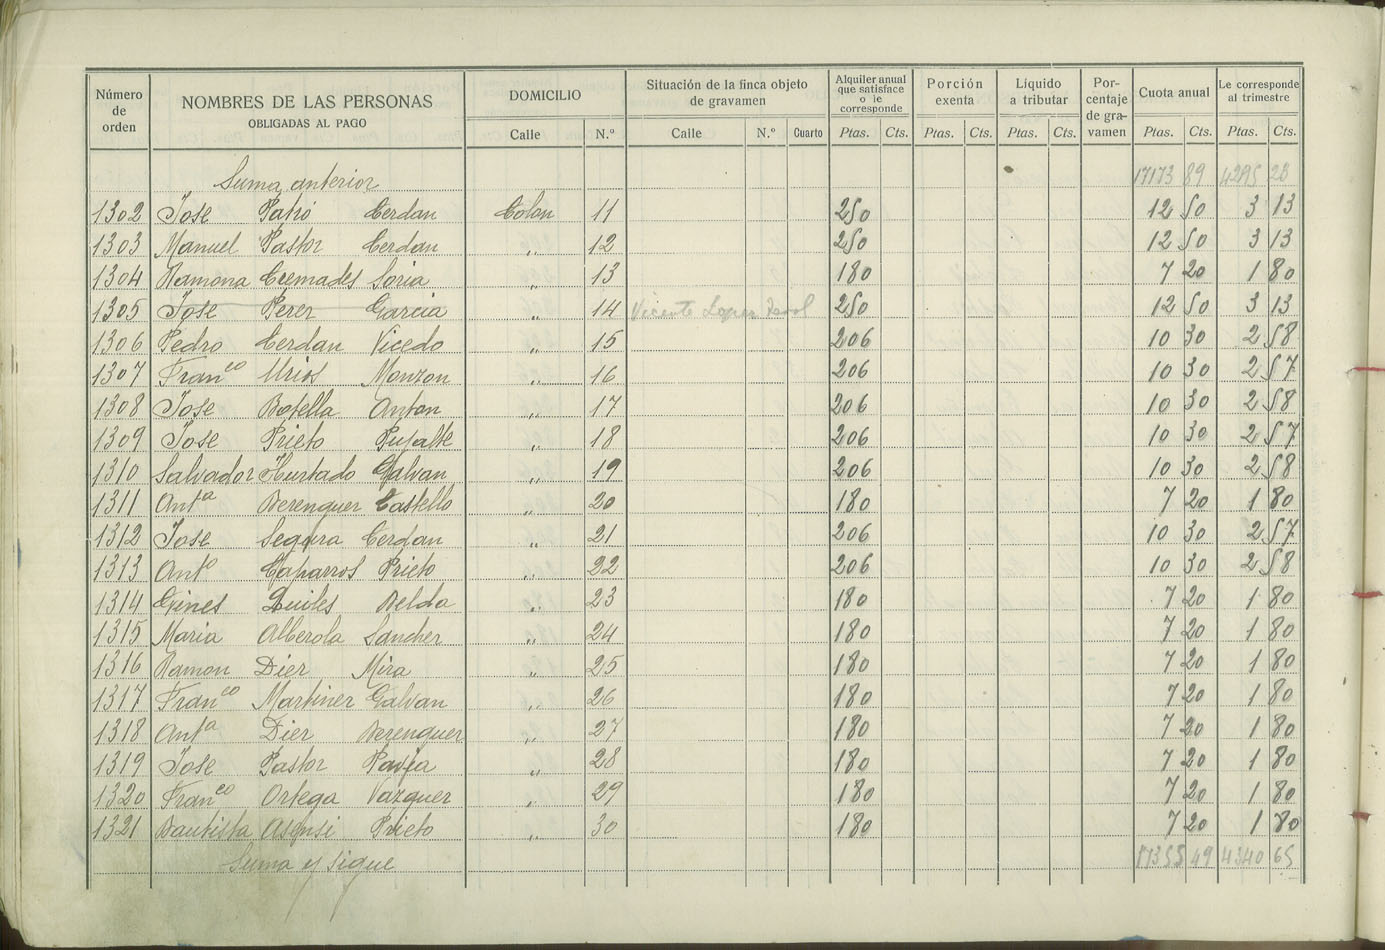 Número de orden
NOMBRES DE LAS PERSONAS
OBLIGADAS AL PAGO
DOMICILIO
Calle N.º
Situación de la finca objeto de gravamen
Calle N.º Cuarto
Alquiler anual que satisface o le corresponde
Ptas. Cts.
Porción exenta
Ptas. Cts.
Líquido a tributar
Ptas. Cts.
Porcentaje de gravamen
Cuota anual
Ptas. Cts.
Le corresponde al trimestre
Ptas. Cts.
Suma anterior 17173 89 4295 28
1302 Jose Cerdan Colon 11 250 12 50 3 13
1303 Manuel Pastor Cerdan " 12 250 12 50 3 13
1304 Ramona Cremades Soria " 13 180 7 20 1 80
1305 Jose Perez Garcia " 14 Vicente Lopez 250 12 50 3 13
1306 Pedro Cerdan Vicedo " 15 206 10 30 2 58
1307 Franco Urios Monzon " 16 206 10 30 2 57
1308 Jose Botella Anton " 17 206 10 30 2 58
1309 Jose Prieto Pujalte " 18 206 10 30 2 57
1310 Salvador Hurtado Galvan " 19 206 10 30 2 58
1311 Anta Berenguer Castello " 20 180 7 20 1 80
1312 Jose Segura Cerdan " 21 206 10 30 2 57
1313 Anto Caparros Prieto " 22 206 10 30 2 58
1314 Gines Quiles Belda " 23 180 7 20 1 80
1315 Maria Alberola Sanchez " 24 180 7 20 1 80
1316 Ramon Diez Mira " 25 180 7 20 1 80
1317 Franco Martinez Galvan " 26 180 7 20 1 80
1318 Anta Diez Berenguer " 27 180 7 20 1 80
1319 Jose Pastor Pavia " 28 180 7 20 1 80
1320 Franco Ortega Vazquez " 29 180 7 20 1 80
1321 Bautista Asensi Prieto " 30 180 7 20 1 80
Suma y sigue 17355 49 4340 65